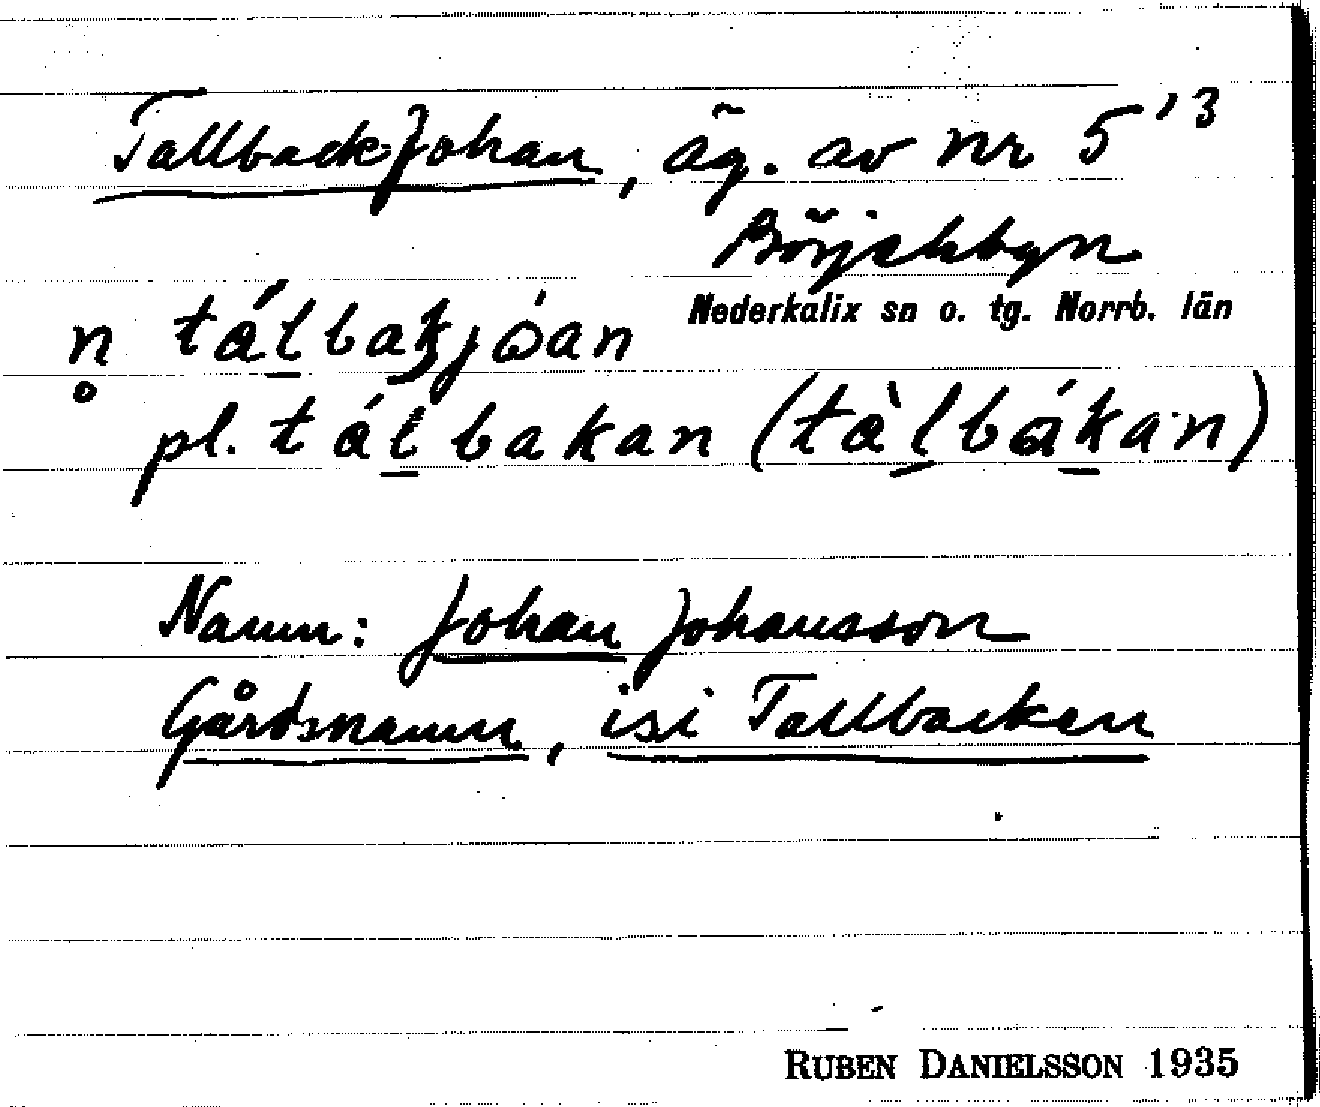 TallbackJohan, äg. av nr 5¹³
Börjelsbyn
Nederkalix sn o. tg. Norrb. län
n̥ tálbakjóan
pl. tálbakan (tàlbákan)
Namn: Johan Johansson
Gårdsnamn, isi Tallbacken
RUBEN DANIELSSON 1935